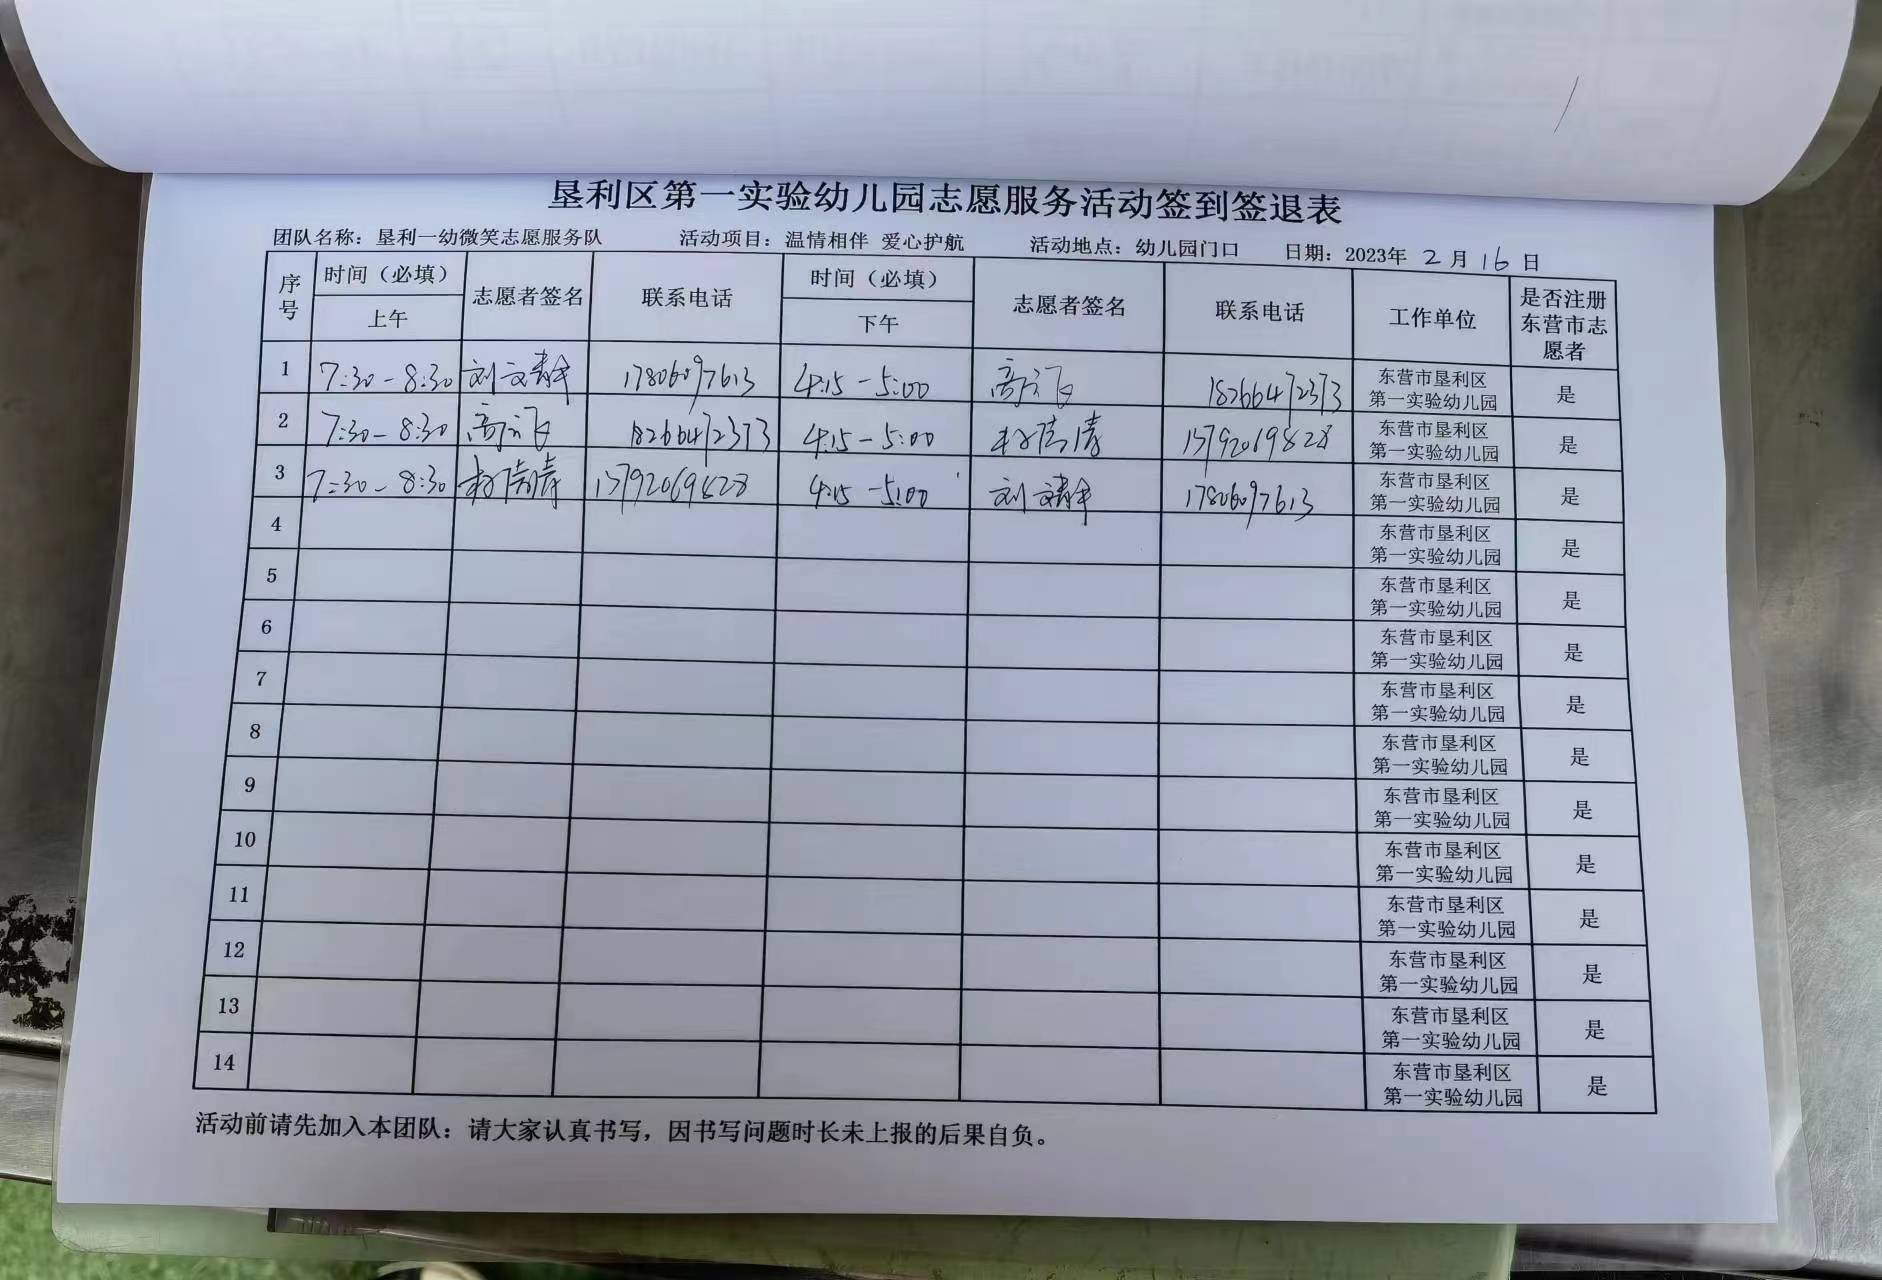 垦利区第一实验幼儿园志愿服务活动签到签退表
团队名称：垦利一幼微笑志愿服务队 活动项目：温情相伴 爱心护航 活动地点：幼儿园门口 日期：2023年 2 月 16 日
序号 时间（必填） 上午 志愿者签名 联系电话 时间（必填） 下午 志愿者签名 联系电话 工作单位 是否注册东营市志愿者
1 7:30-8:30 刘文静 17806097613 4:15-5:00 高云飞 18266472373 东营市垦利区第一实验幼儿园 是
2 7:30-8:30 高云飞 18266472373 4:15-5:00 13792069828 东营市垦利区第一实验幼儿园 是
3 7:30-8:30 13792069828 4:15-5:00 刘文静 17806097613 东营市垦利区第一实验幼儿园 是
4 东营市垦利区第一实验幼儿园 是
5 东营市垦利区第一实验幼儿园 是
6 东营市垦利区第一实验幼儿园 是
7 东营市垦利区第一实验幼儿园 是
8 东营市垦利区第一实验幼儿园 是
9 东营市垦利区第一实验幼儿园 是
10 东营市垦利区第一实验幼儿园 是
11 东营市垦利区第一实验幼儿园 是
12 东营市垦利区第一实验幼儿园 是
13 东营市垦利区第一实验幼儿园 是
14 东营市垦利区第一实验幼儿园 是
活动前请先加入本团队：请大家认真书写，因书写问题时长未上报的后果自负。